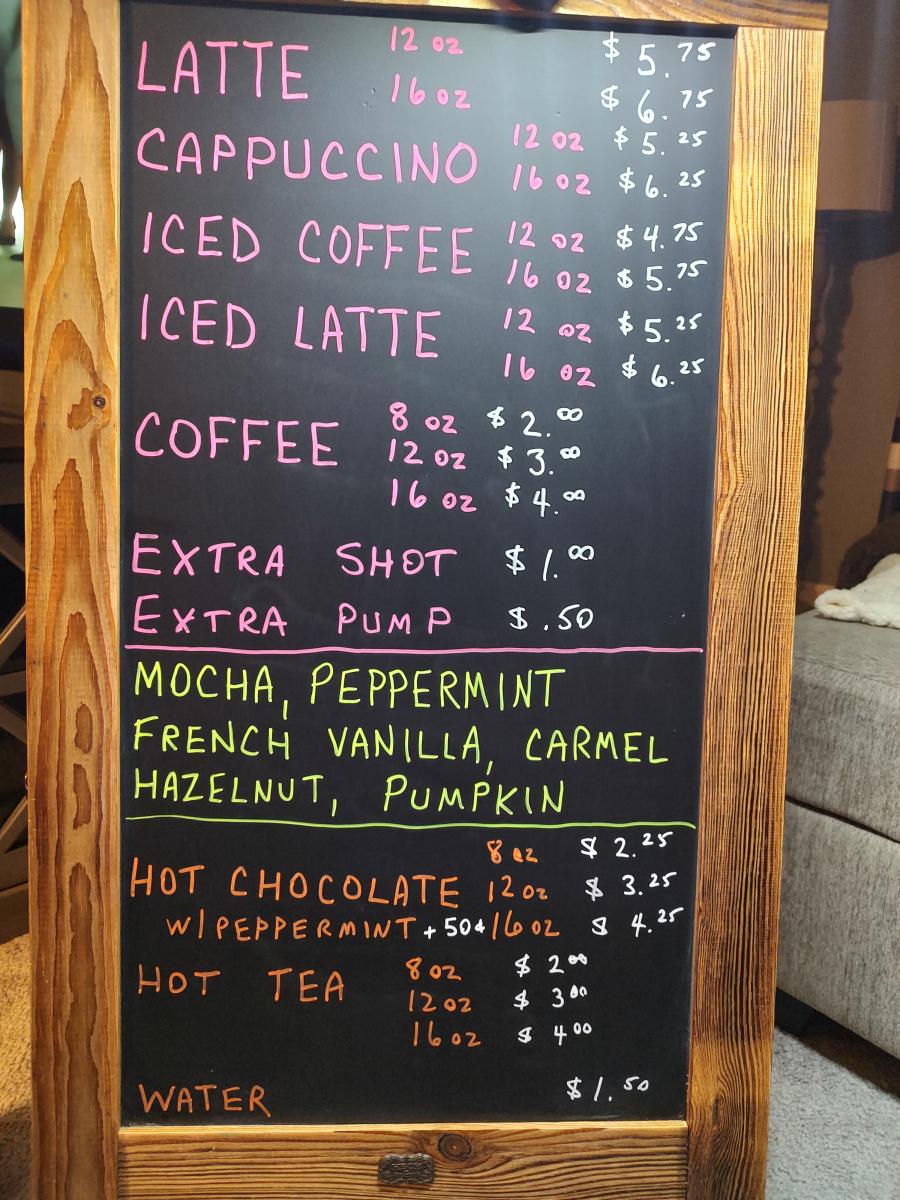 LATTE 12 oz $ 5.75
16 oz $ 6.75
CAPPUCCINO 12 oz $ 5.25
16 oz $ 6.25
ICED COFFEE 12 oz $ 4.75
16 oz $ 5.75
ICED LATTE 12 oz $ 5.25
16 oz $ 6.25
COFFEE 8 oz $ 2.00
12 oz $ 3.00
16 oz $ 4.00
EXTRA SHOT $ 1.00
EXTRA PUMP $ .50
MOCHA, PEPPERMINT
FRENCH VANILLA, CARMEL
HAZELNUT, PUMPKIN
8 oz $ 2.25
HOT CHOCOLATE 12 oz $ 3.25
W/ PEPPERMINT +50¢ 16 oz $ 4.25
HOT TEA 8 oz $ 2.00
12 oz $ 3.00
16 oz $ 4.00
WATER $ 1.50